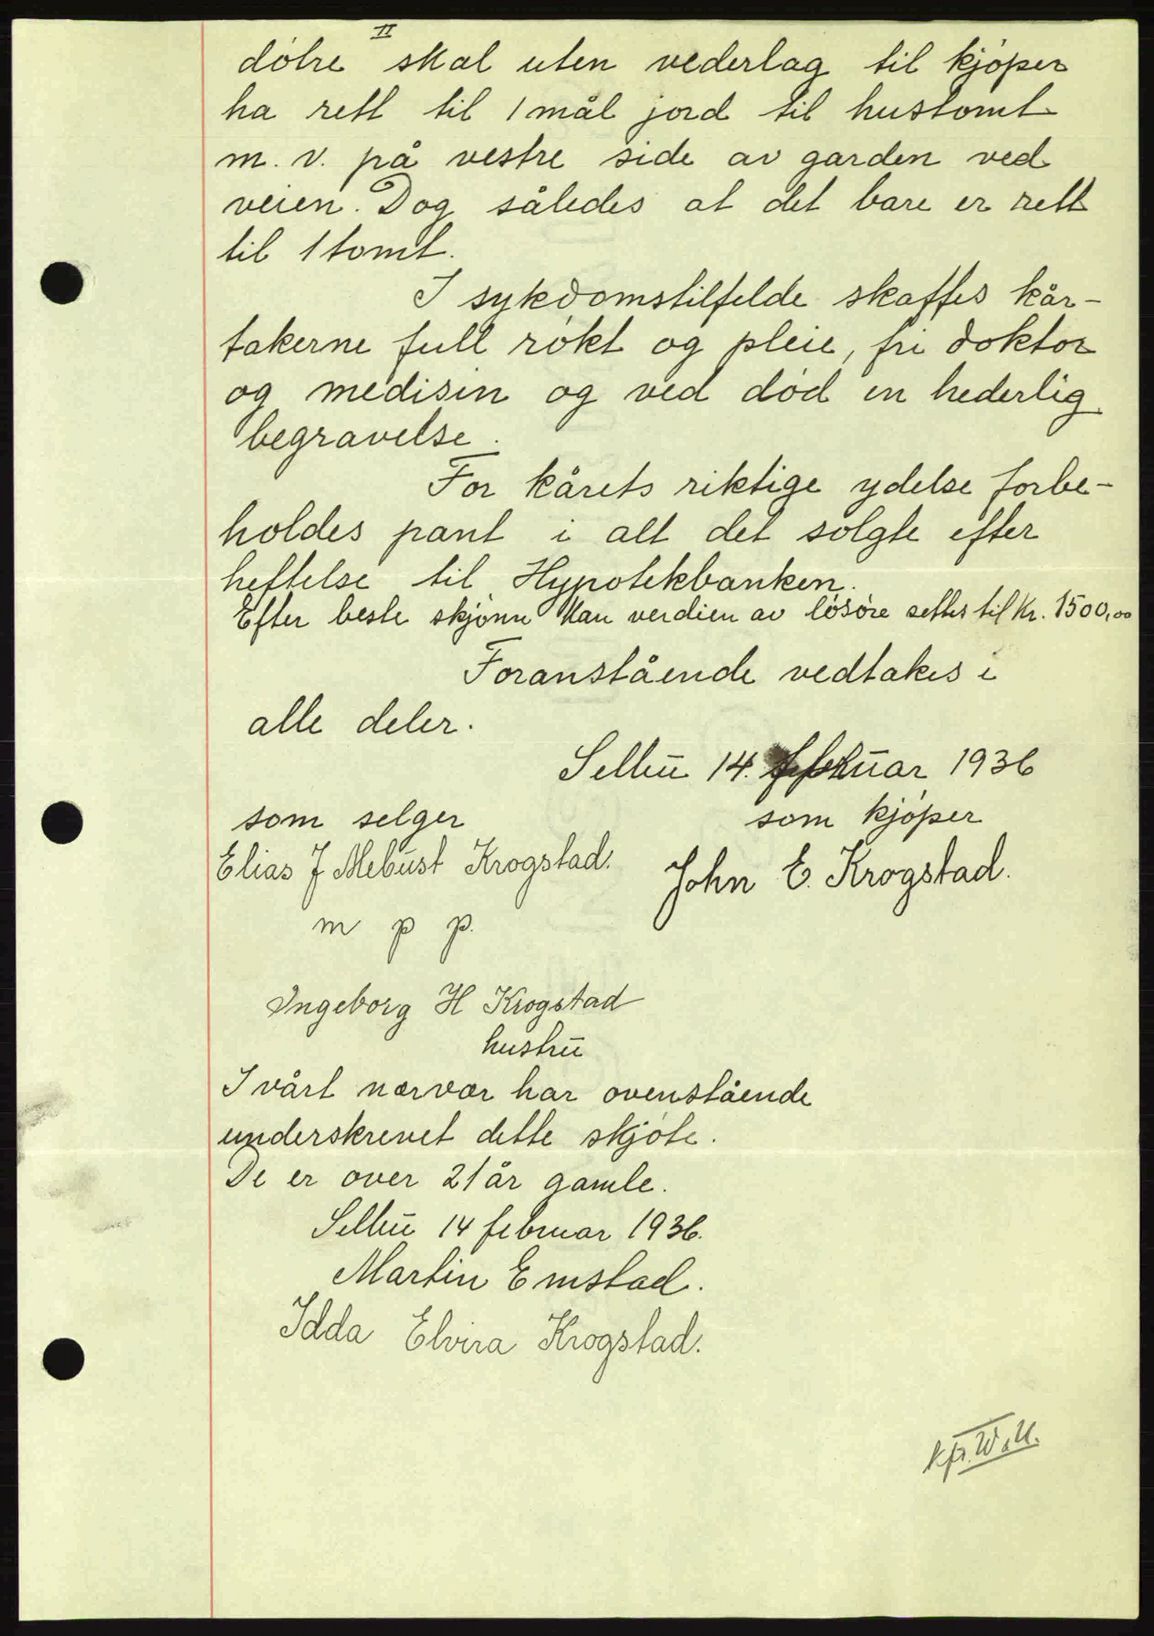 II
døtre skal uten vederlag til kjøper
ha rett til 1 mål jord til hustomt
m. v. på vestre side av garden ved
veien. Dog således at det bare er rett
til 1 tomt.
I sykdomstilfelde skaffes kår-
takerne full røkt og pleie, fri doktor
og medisin og ved død en hederlig
begravelse.
For kårets riktige ydelse forbe-
holdes pant i alt det solgte efter
heftelse til Hypotekbanken.
Efter beste skjønn kan verdien av løsøre settes til Kr. 1500,00
Foranstående vedtakes i
alle deler.
Selbu 14. februar 1936
som selger som kjøper
Elias J Mebust Krogstad. John E. Krogstad.
m p p.
Ingeborg H Krogstad
hustru
I vårt nærvær har ovenstående
underskrevet dette skjøte.
De er over 21 år gamle.
Selbu 14 februar 1936.
Martin Emstad.
Idda Elvira Krogstad.